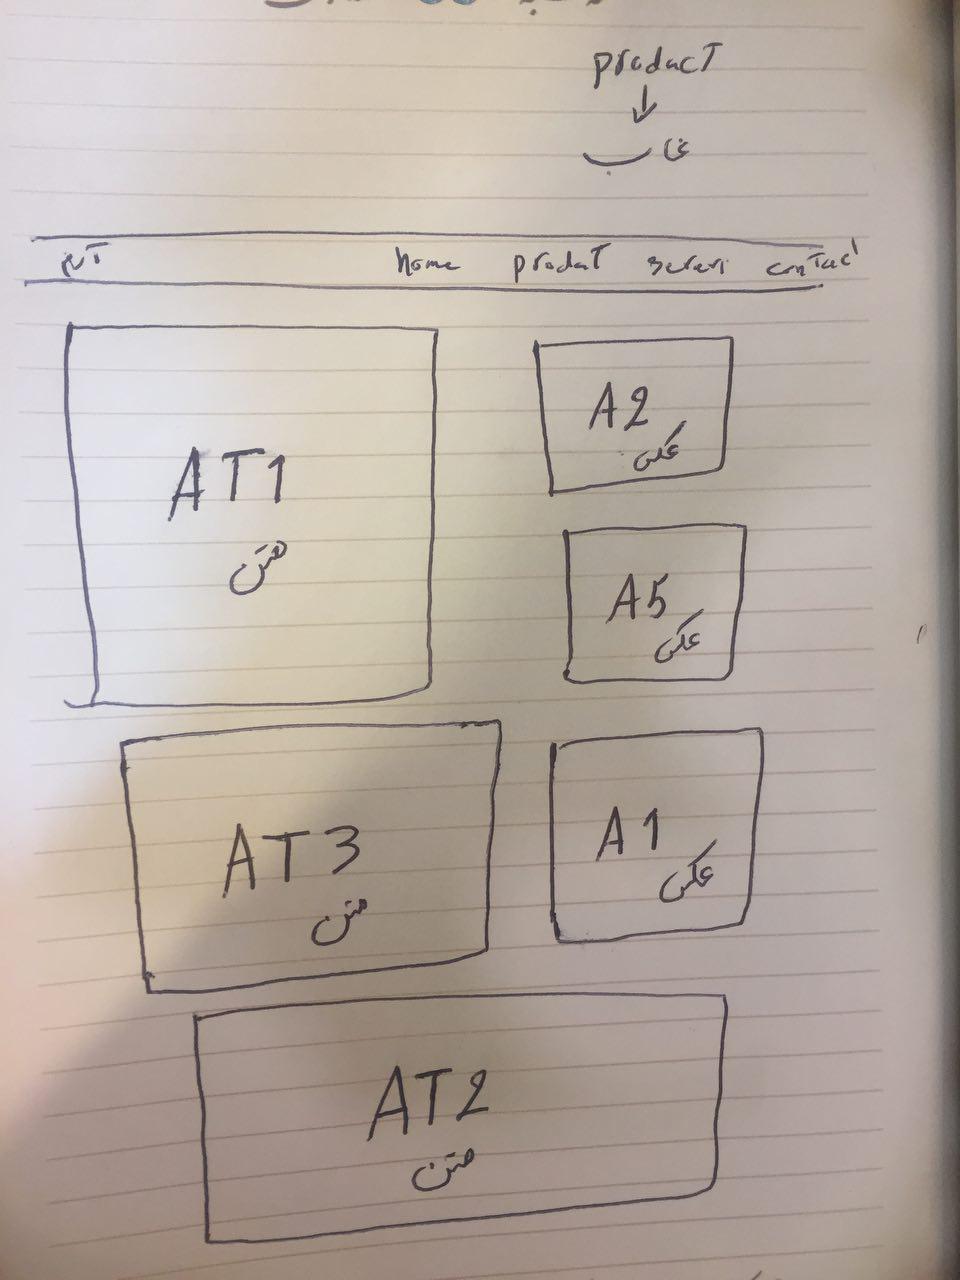 product
قاب
آرم home product serevi contact
AT1
متن
A2
عکس
A5
عکس
AT3
متن
A1
عکس
AT2
متن